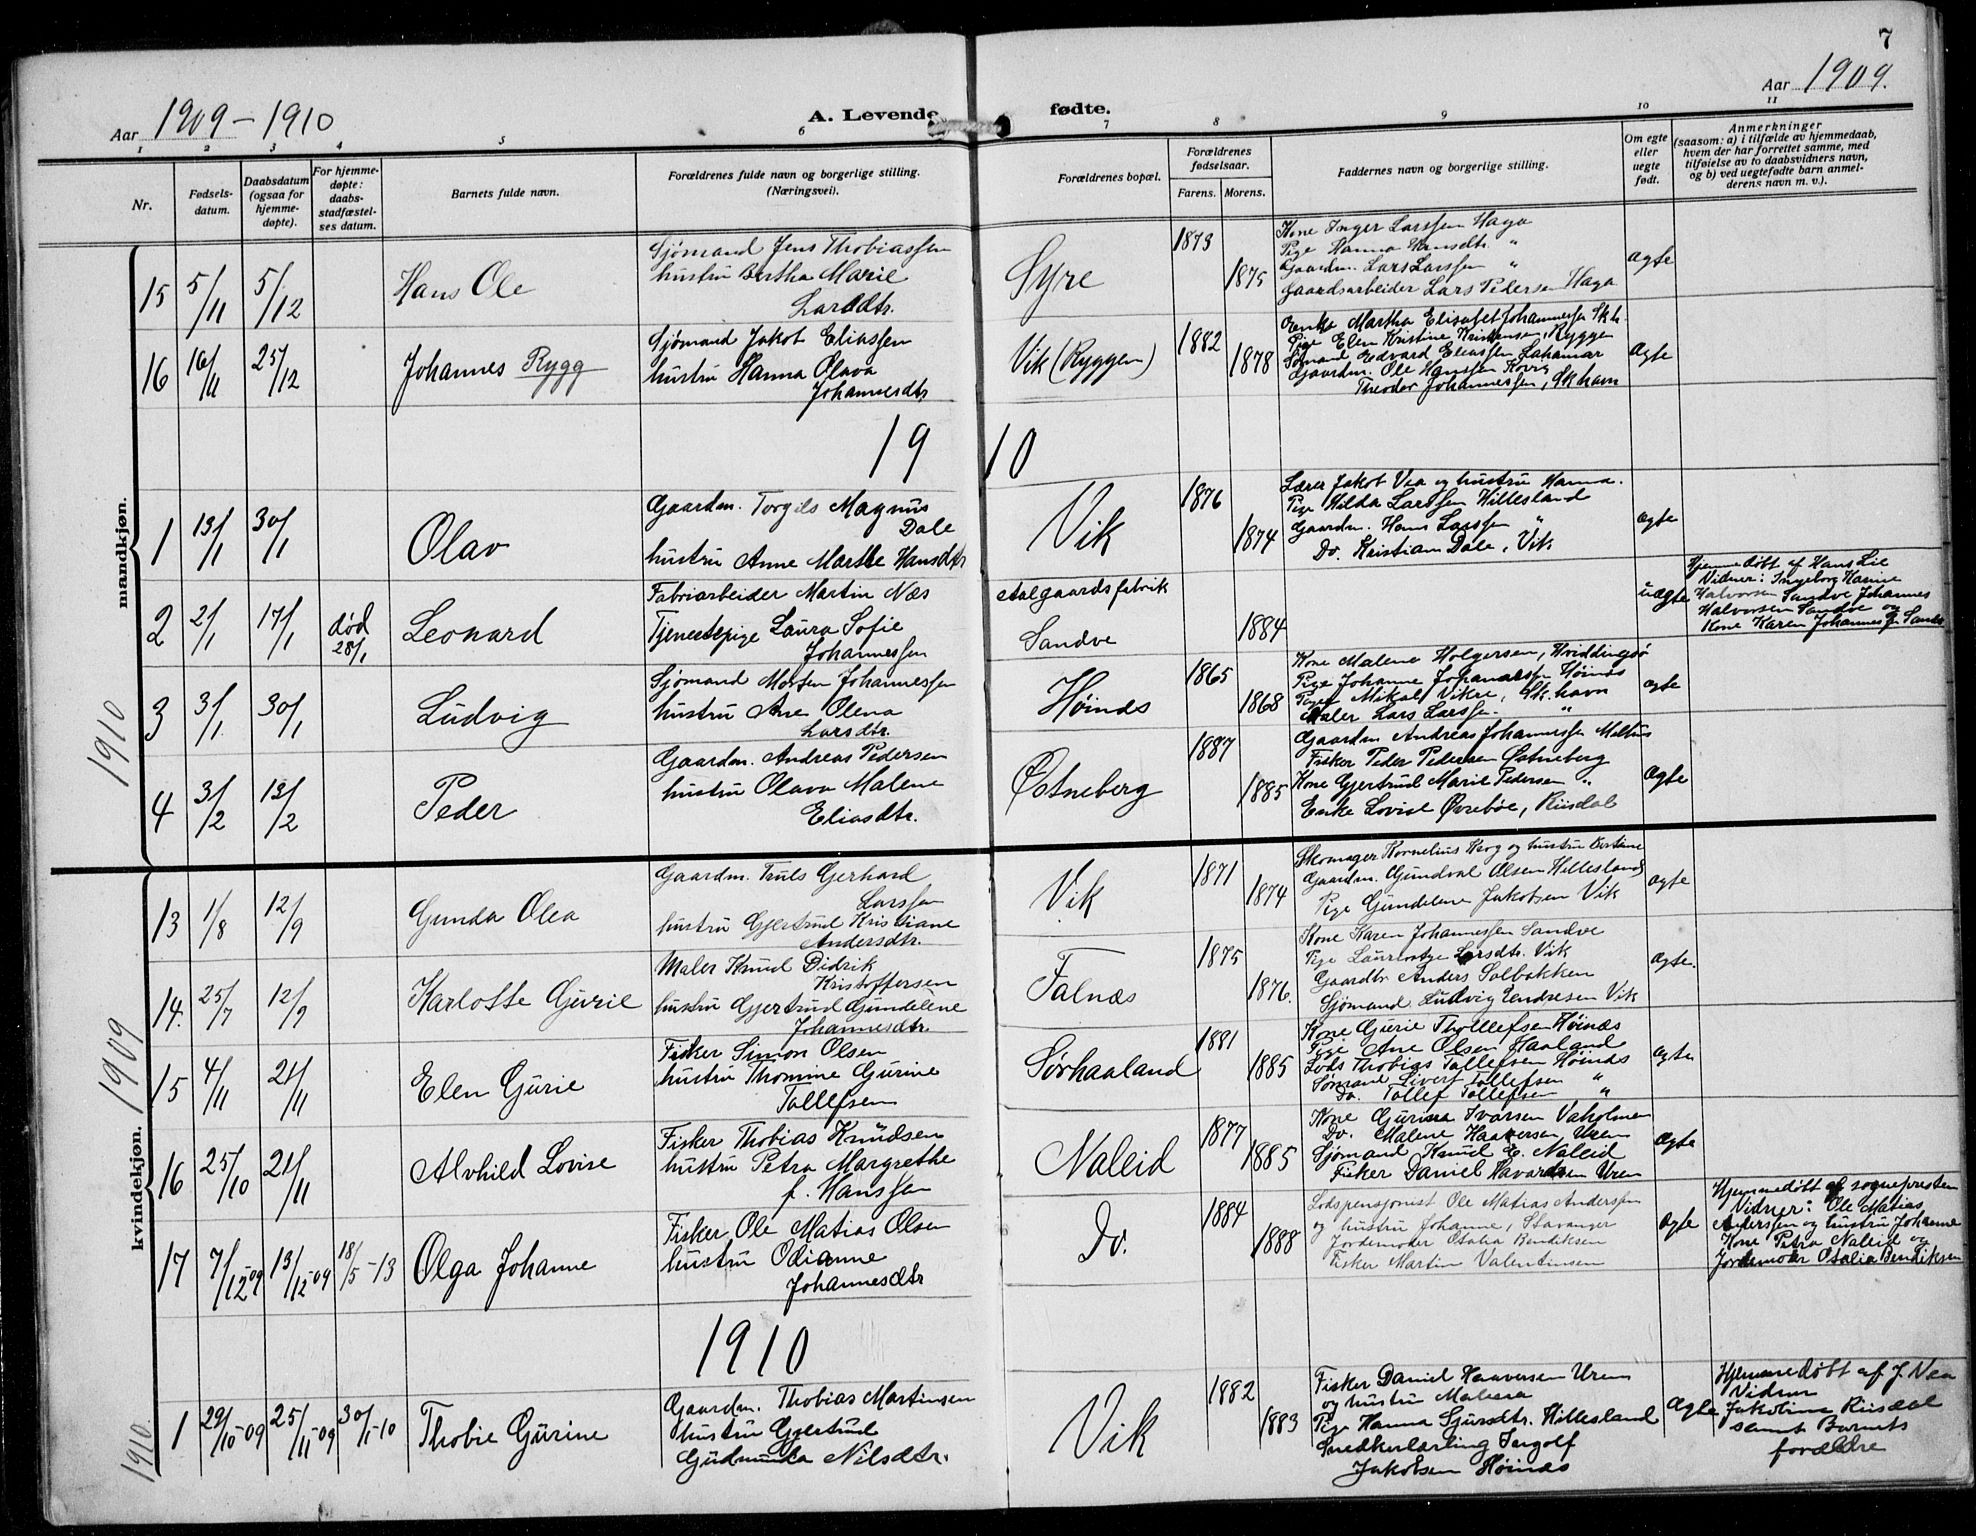 7
Aar 1909-1910
A. Levende fødte.
Aar 1909.
1 2 3 4 5 6 7 8 9 10 11
Nr.
Fødsels-
datum.
Daabsdatum
(ogsaa for
hjemme-
døpte).
For hjemme-
døpte:
daabs-
stadfæstel-
ses datum.
Barnets fulde navn.
Forældrenes fulde navn og borgerlige stilling.
(Næringsvei).
Forældrenes bopæl.
Forældrenes
fødselsaar.
Farens. Morens.
Faddernes navn og borgerlige stilling.
Om egte
eller
uegte
født.
Anmerkninger
(saasom: a) i tilfælde av hjemmedaab,
hvem der har forrettet samme, med
tilføielse av to daabsvidners navn,
og b) ved uegtefødte barn anmel-
derens navn m. v.).
mandkjøn.
15 5/11 5/12 Hans Ole
Sjømand Jens Thobiassen
hustru Bertha Marie
Larsdtr.
Syre 1873 1875
Kone Inger Larssen Haga
Pige Hanna Hansdtr. "
Gaardm. Lars Larssen "
Gaardsarbeider Lars Pedersen Haga
Ægte
16 16/11 25/12 Johannes Rygg
Sjømand Jakob Eliassen
hustru Hanna Olava
Johannesdtr
Vik (Ryggen) 1882 1878
Enke Martha Elisabet Johannessen Skh.
Pige Elen Kristine Kristensen, Ryggen
Sømand Edvard Eliassen
Gaardm. Ole Hanssen
Theodor Johannessen, Skhavn
Ægte
1910
1 13/1 30/1 Olav
Gaardm. Torgils Magnus
Dale
hustru Anne Marthe Hansdtr
Vik 1876 1874
Lærer Jakob Vea og hustru Hanna.
Pige Hilda Larssen Hillesland
Gaardm. Hans Larssen "
Do. Kristian Dale, Vik
Ægte
2 2/1 17/1 død 28/1 Leonard
Fabriarbeider Martin Næs
Tjenestepige Laura Sofie
Johannessen
Aalgaards fabrik
Sandve 1884
uægte
Hjemmedøbt af Hans Lie
Vidner: Ingeborg Karine
Halvorsen Sandve Johannes
Halvorsen Sandve og
Kone Karen Johannessen Sandve
3 3/1 30/1 Ludvig
Sjømand Morten Johannessen
hustru Ane Olena
Larsdtr.
Høinæs 1865 1868
Kone Malene Holgersen, Hviddingsø
Pige Johanne Johannessen Høinæs
Pige Mikal Vikre, Sk.havn
Maler Lars Larssen. "
Ægte
1910
4 3/2 13/2 Peder
Gaardm. Andreas Pedersen
hustru Olava Malene
Eliasdtr.
Østneberg 1887 1885
Gaardm Andreas Johannessen Meltus
Fisker Peder Pedersen Østneberg
Kone Gjertrud Marie Pedersen "
Enke Lovise Øvrebøe, Riisdal
Ægte
kvindekjøn. 1909
13 1/8 12/9 Gunda Olea
Gaardm. Truls Gerhard
Larssen
hustru Gjertrud Kristiane
Andersdtr.
Vik 1871 1874
Skomager Kornelius Berg og hustru Bertine
Gaardm. Gundval Olsen Hillesland
Pige Gundelene Jakobsen Vik
Ægte
14. 25/7 12/9 Karlotte Gurie
Maler Knud Didrik
Kristoffersen
hustru Gjertrud Gundelene
Johannesdtr.
Falnæs 1875 1876.
Kone Karen Johannessen Sandve
Pige Larsdtr. Vik
Gaardbr Anders Solbakken
Sjømand Ludvig Endresen Vik
Ægte.
15 4/11 21/11 Elen Gurie
Fisker Simon Olsen
hustru Thomine Gurine
Tollefsen
Sørhaaland 1881 1885
Kone Gurie Thollefsen Høinæs
Pige Ane Olsen Haaland
Lods Thobias Tollefsen Høinæs
Sømand Sivert Tollefsen "
Do. Tollef Tollefsen "
Ægte
16 25/10 21/11 Alvhild Lovise
Fisker Thobias Knudsen
hustru Petra Margrethe
f. Hanssen
Naleid 1877 1885
Kone Gurina Ivarsen Vaholmen
Do. Malene Haaversen Uren
Sjømand Knud E. Naleid
Fisker Daniel Havardsen Uren
Ægte
17 7/12-09 13/12-09 18/5-13 Olga Johanne
Fisker Ole Matias Olsen
hustru Odianne
Johannesdtr
Do. 1884 1888
Lodspensjonist Ole Matias Anderssen
og hustru Johanne, Stavanger
Jordemoder Otalia Bendiksen
Fisker Martin Valentinsen
Ægte
Hjemmedøbt af sognepresten
Vidner: Ole Matias
Anderssen og hustru Johanne
Kone Petra Naleid og
Jordemoder Otalia Bendiksen
1910
1910.
1 29/10-09 25/11-09 30/1-10 Thobie Gurine
Gaardm. Thobias Martinsen
hustru Gjertrud
Gudmunda Nilsdtr.
Vik 1882 1883
Fisker Daniel Haaversen Uren
og hustru Malena
Pige Hanna Sjursdtr. Hillesland
Snedkerlærling Ingolf
Jakobsen Høinæs
Ægte
Hjemmedøbt af J. Vea
Vidner
Jakobine Riisdal
samt Barnets
forældre